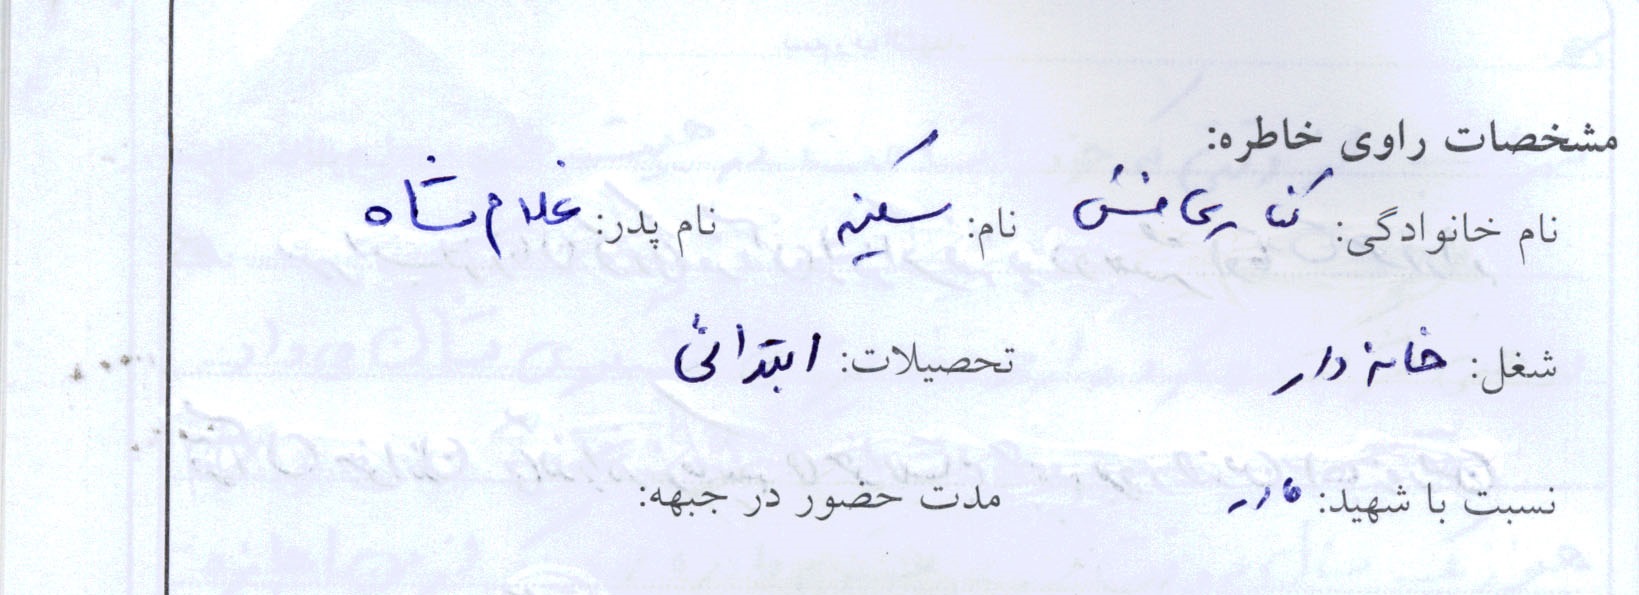 مشخصات راوی خاطره:
نام خانوادگی: نام: سکینه نام پدر: غلام شاه
شغل: خانه دار تحصیلات: ابتدائی
نسبت با شهید: مادر مدت حضور در جبهه: